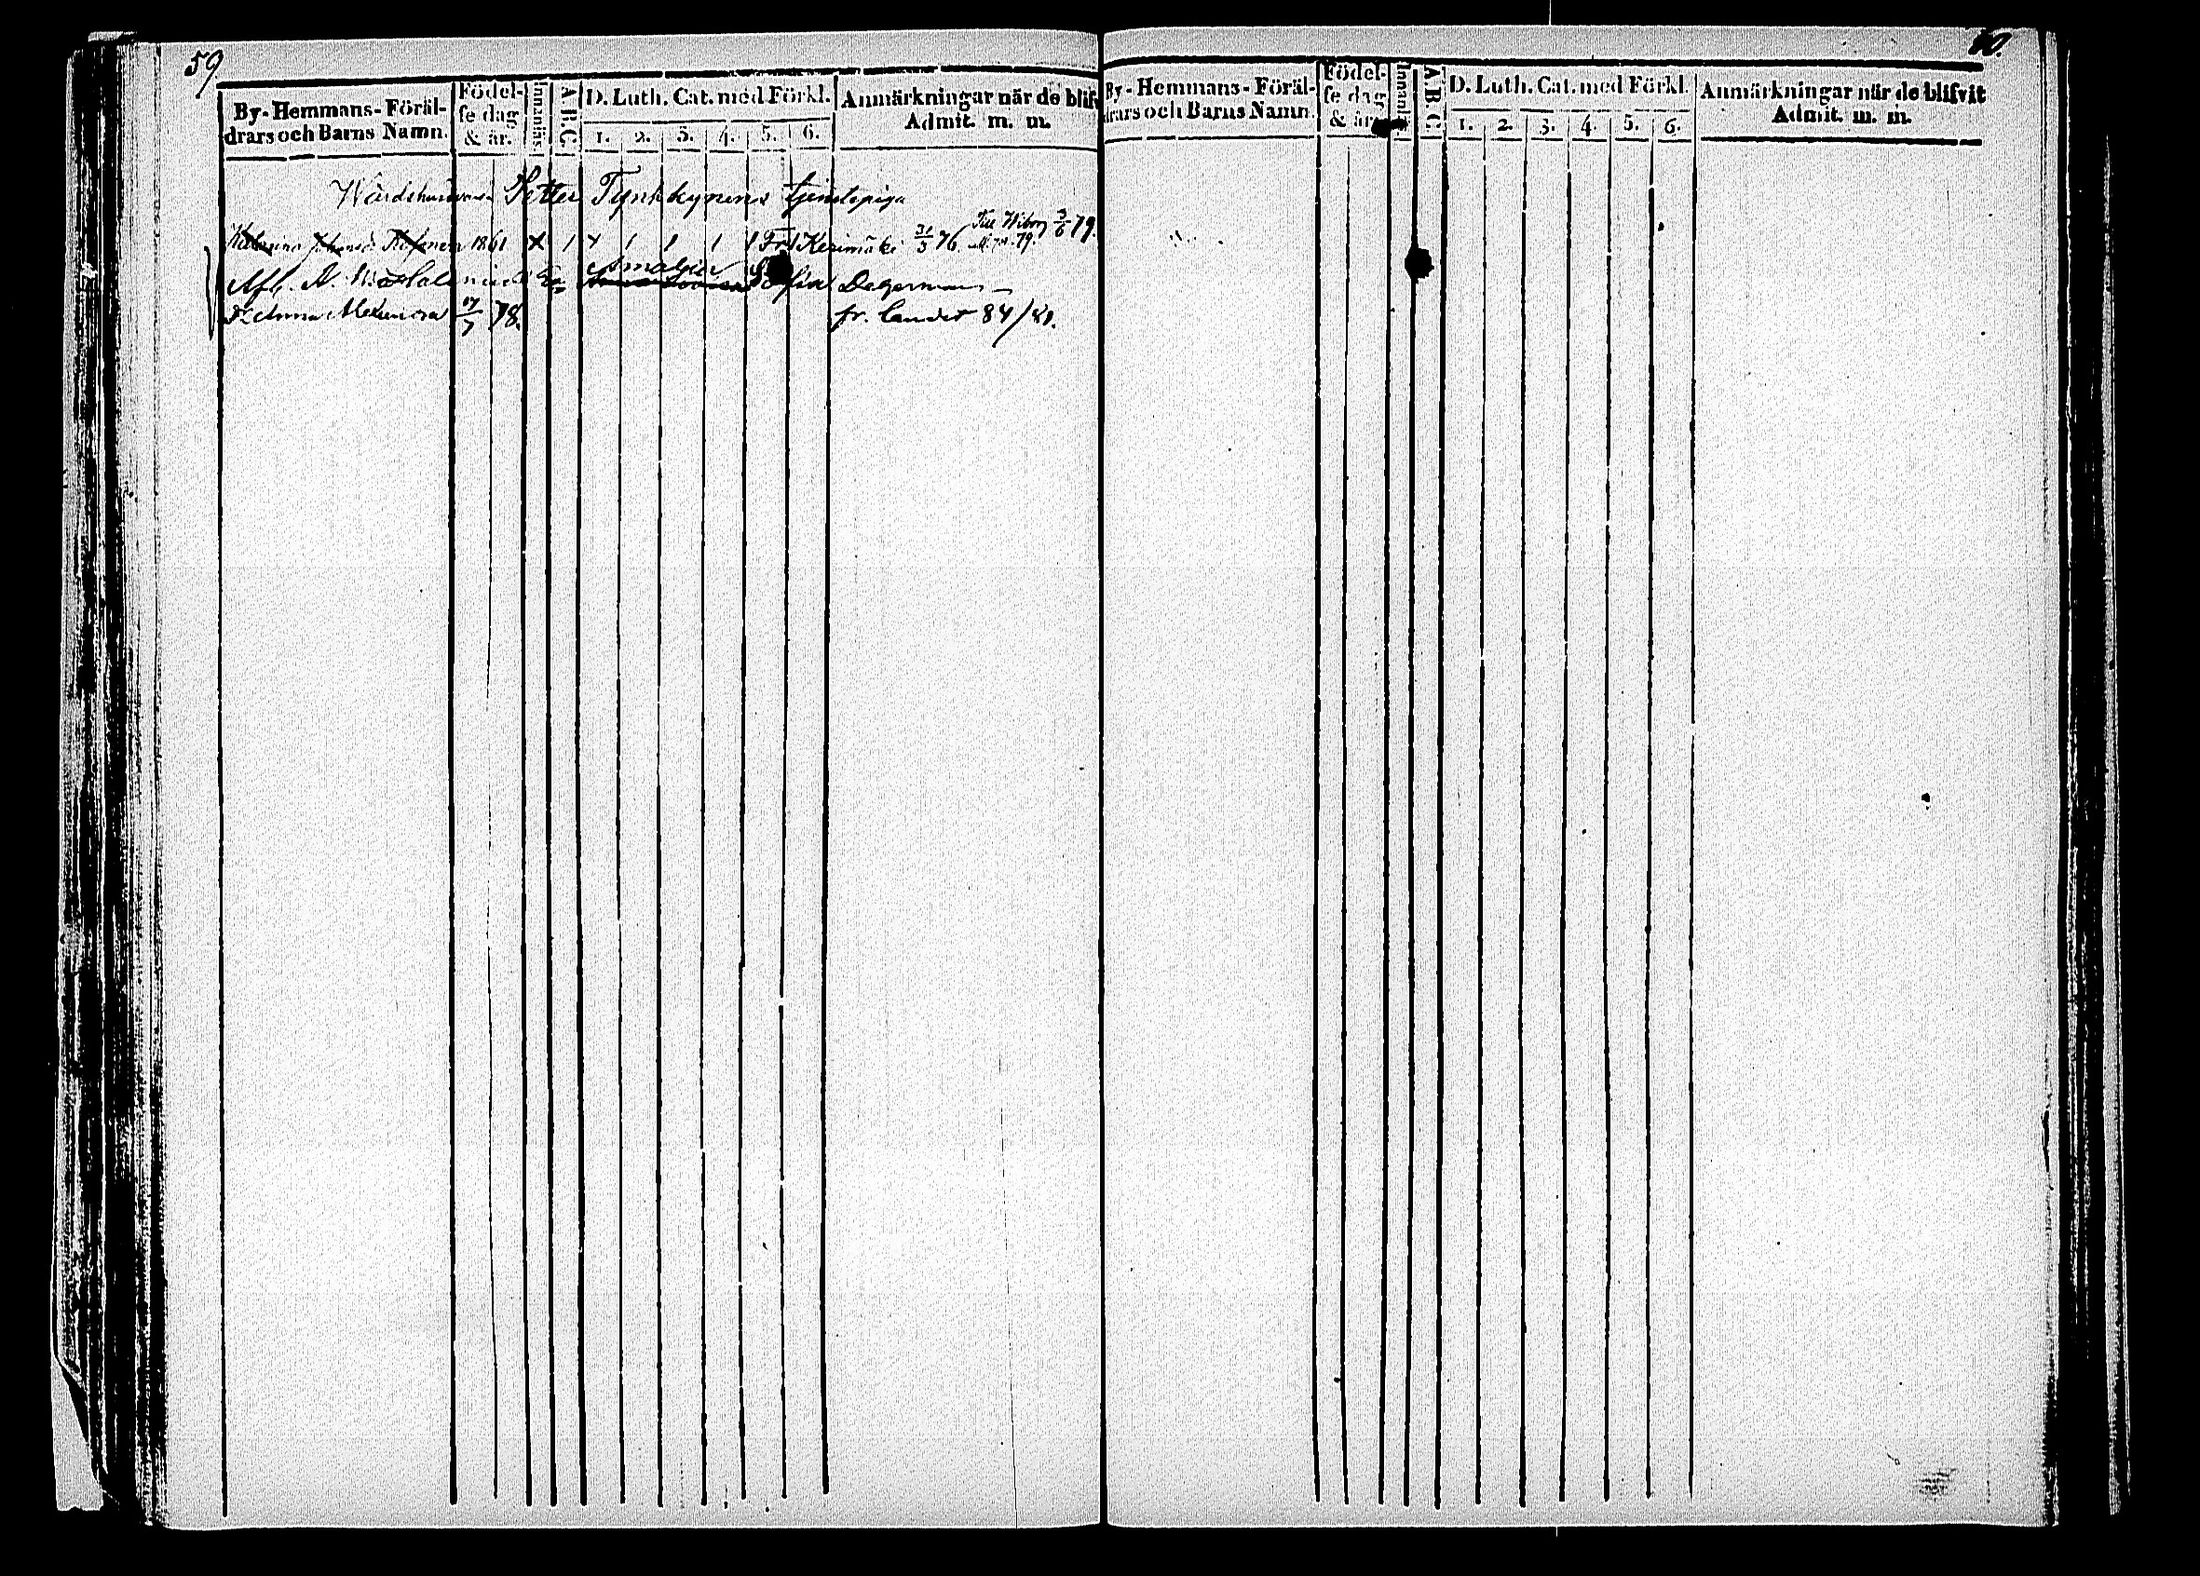 59
By-Hemmans-Föräl-
drars och Barns Namn.
Födel-
se dag
& år.
Innanläs
A B C
D. Luth. Cat. med Förkl.
1. 2. 3. 4. 5. 6.
Anmärkningar när de blifv
Admit. m. m.
Petter Tynkkynens tjenstepiga
Katarina 1861 Kerimäki 31/5 76 Till Wiborg 3/6 79.
Amalia
Sofia Degerman
Anna 17/7 78. fr. landet 84/81.
60.
By-Hemmans-Föräl-
drars och Barns Namn.
Födel-
se dag
& år
Innanläs
A B C
D. Luth. Cat. med Förkl.
1. 2. 3. 4. 5. 6.
Anmärkningar när de blifvit
Admit. m. m.